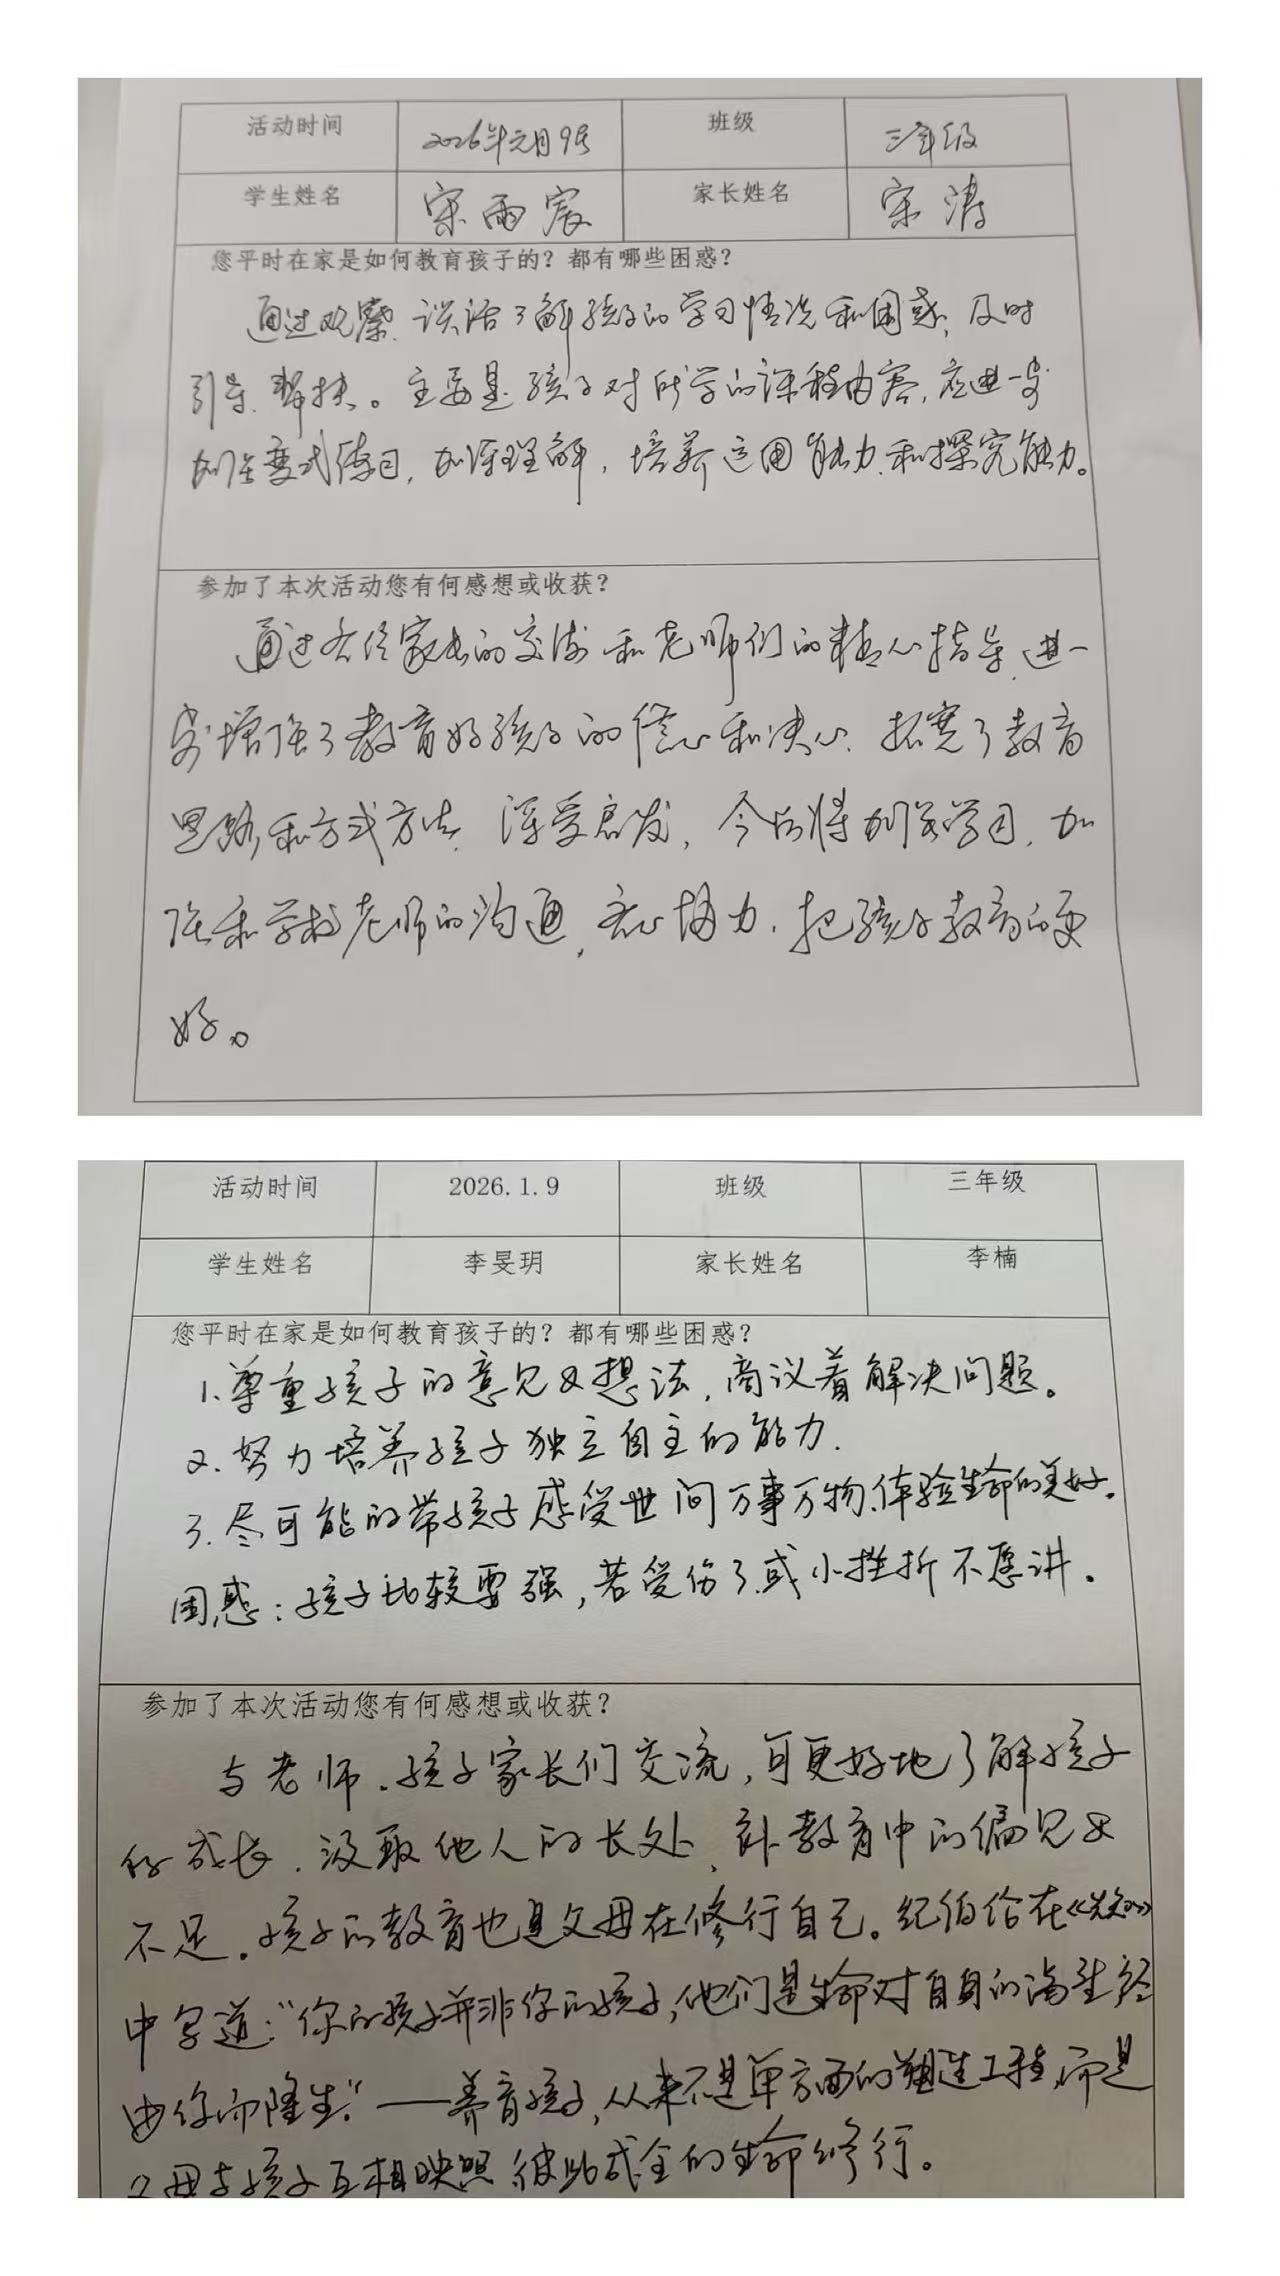 活动时间 2026年元月9号 班级 三年级
学生姓名 宋雨宸 家长姓名 宋涛
您平时在家是如何教育孩子的？都有哪些困惑？
通过观察、谈话了解孩子的学习情况和困惑，及时
引导、帮扶。主要是孩子对所学的课程内容，应进一步
加强变式练习，加深理解，培养运用能力和探究能力。
参加了本次活动您有何感想或收获？
通过各位家长的交流和老师们的精心指导，进一
步增强了教育好孩子的信心和决心，拓宽了教育
思路和方式方法，深受启发，今后将加强学习，加
强和学校老师的沟通，齐心协力，把孩子教育的更
好。
活动时间 2026.1.9 班级 三年级
学生姓名 李旻玥 家长姓名 李楠
您平时在家是如何教育孩子的？都有哪些困惑？
1.尊重孩子的意见及想法，商议着解决问题。
2.努力培养孩子独立自主的能力.
3.尽可能的带孩子感受世间万事万物、体验生命的美好。
困惑：孩子比较要强，若受伤了或小挫折不愿讲。
参加了本次活动您有何感想或收获？
与老师、孩子家长们交流，可更好地了解孩子
的成长、汲取他人的长处、补教育中的偏见及
不足。孩子的教育也是父母在修行自己。纪伯伦在《先知》
中写道：“你的孩子并非你的孩子，他们是生命对自身的渴望经
由你而降生”——养育孩子，从来不是单方面的塑造工程，而是
父母与孩子互相映照 彼此成全的生命修行。